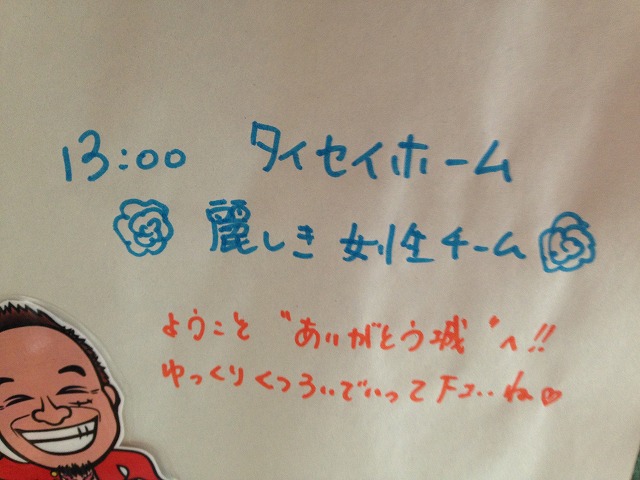 13:00 タイセイホーム
麗しき 女性チーム
ようこそ "ありがとう城"へ!!
ゆっくりくつろいでいって下さいね♡